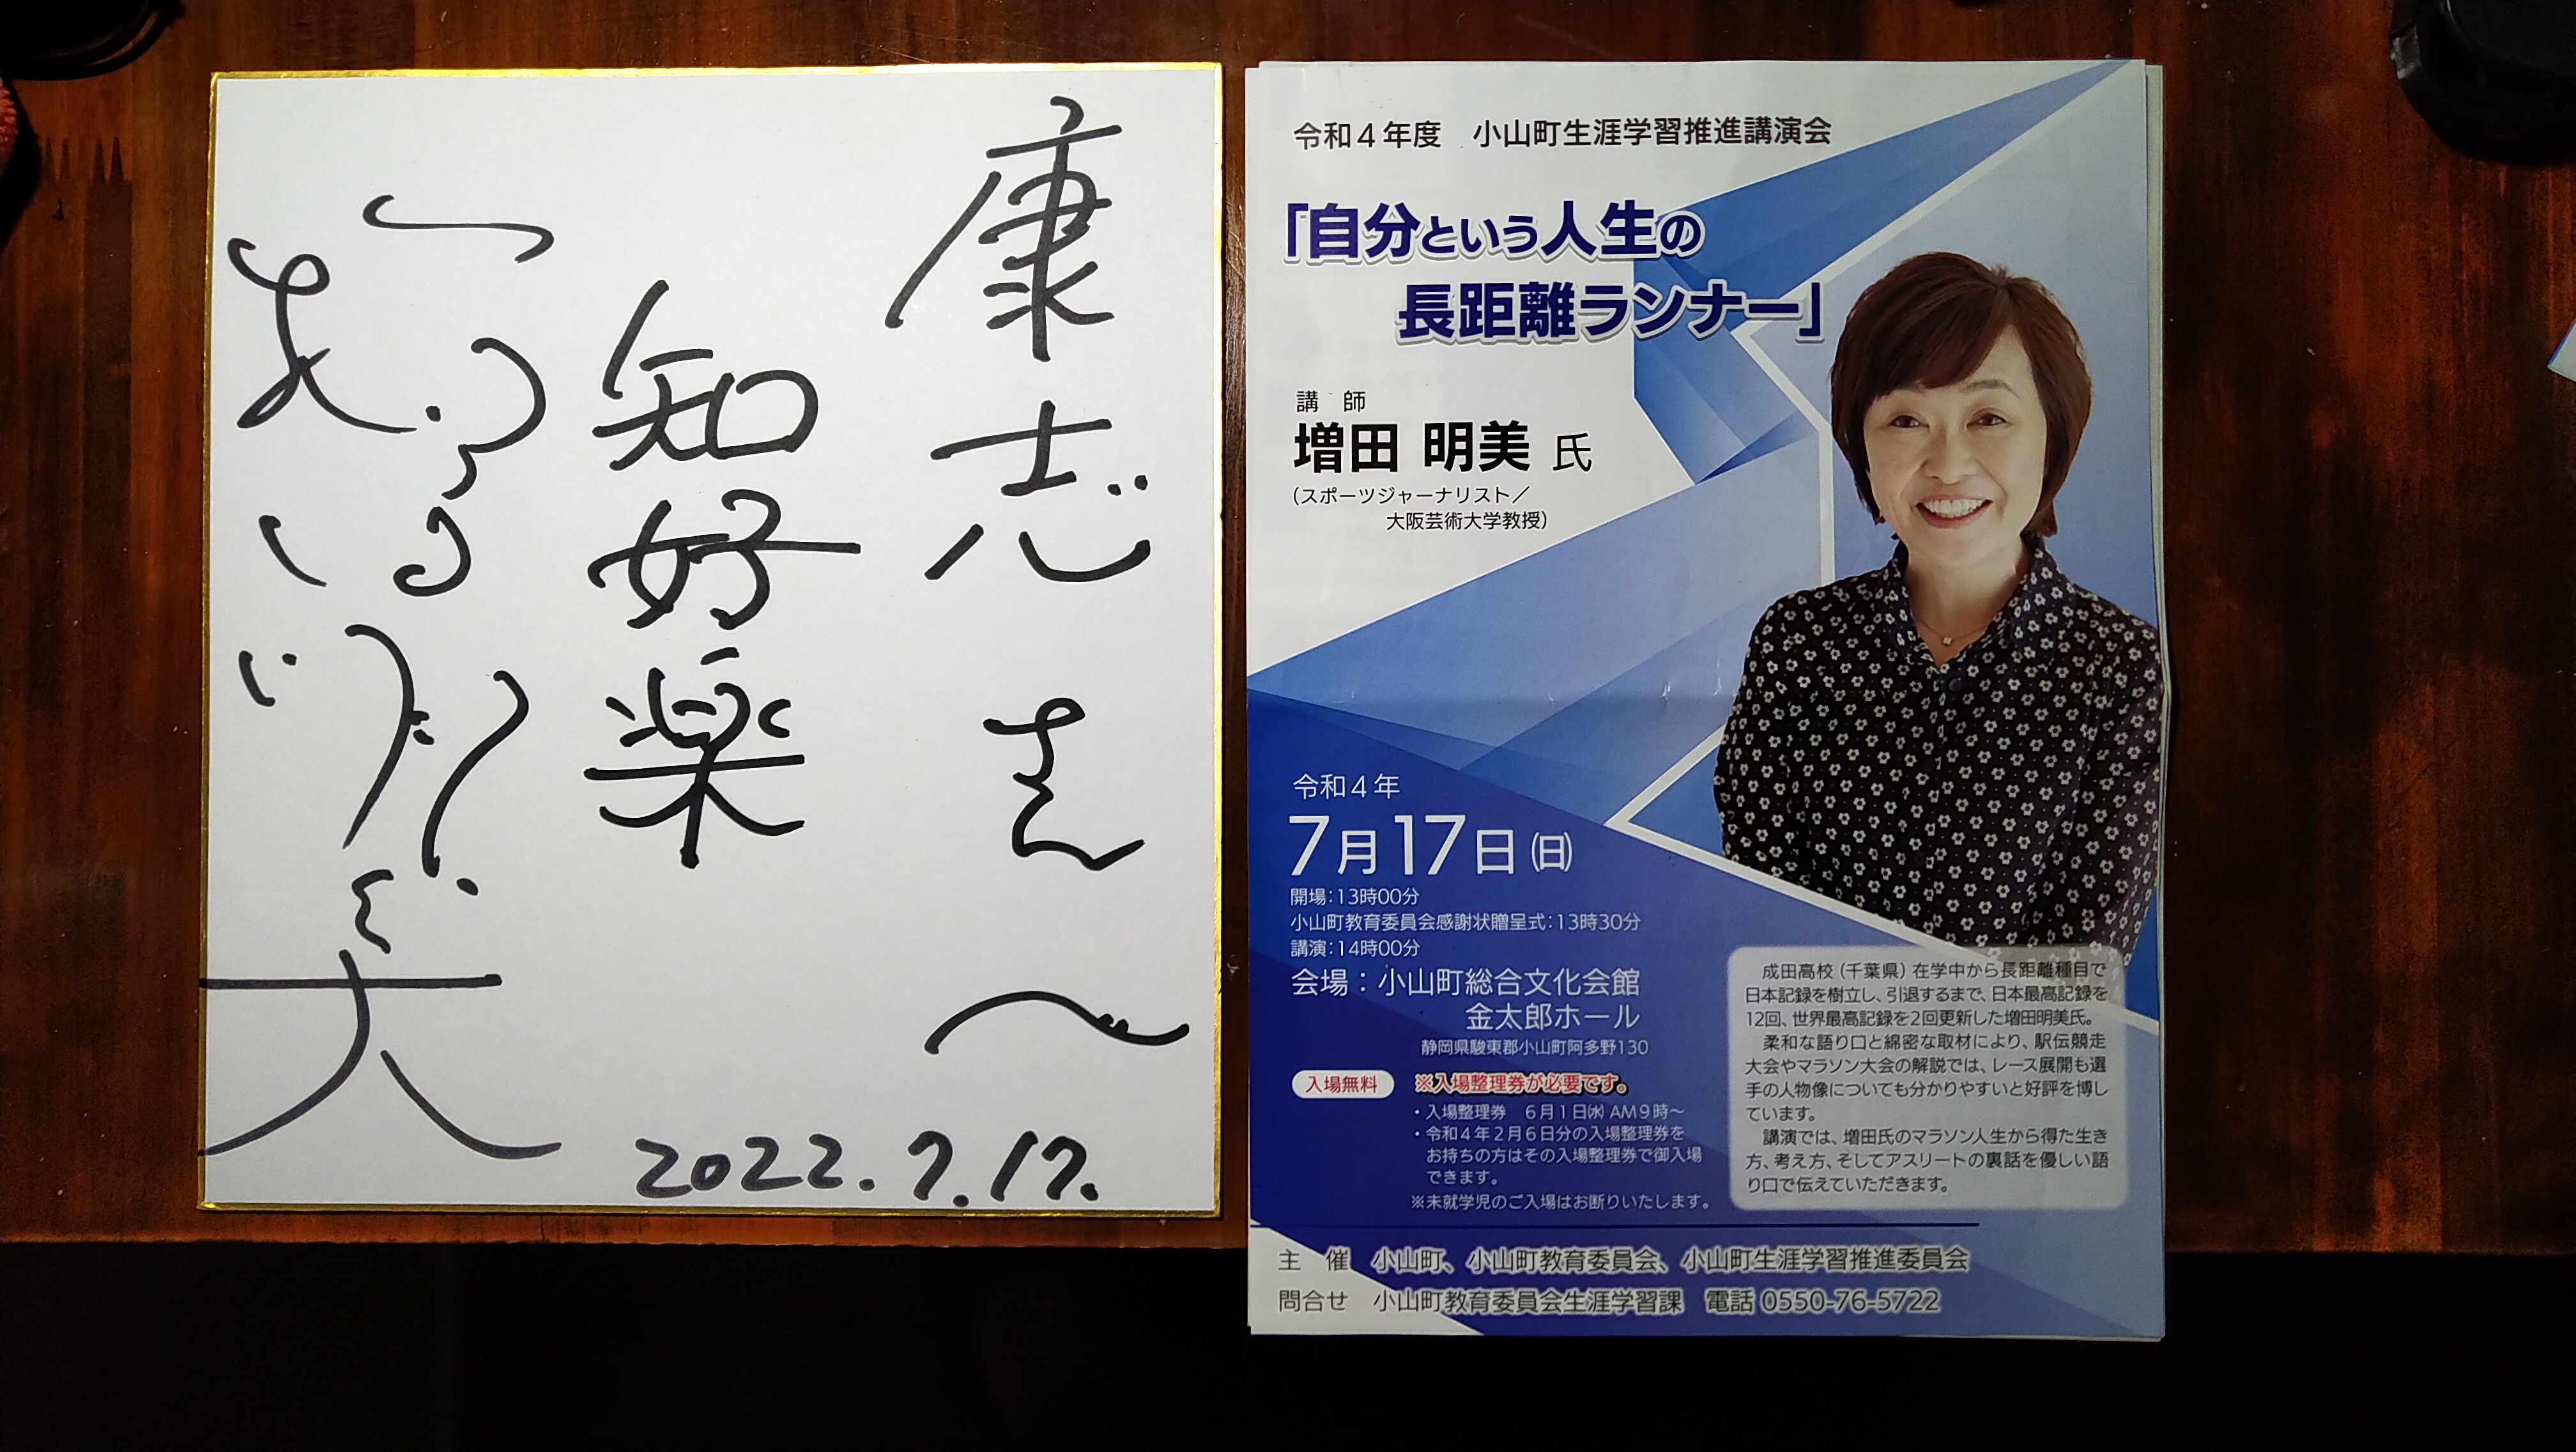 康志さん へ
知好楽
2022.7.17.
令和4年度 小山町生涯学習推進講演会
「自分という人生の
長距離ランナー」
講 師
増田 明美 氏
(スポーツジャーナリスト/
大阪芸術大学教授)
令和4年
7月17日(日)
開場:13時00分
小山町教育委員会感謝状贈呈式:13時30分
講演:14時00分
会場:小山町総合文化会館
金太郎ホール
静岡県駿東郡小山町阿多野130
入場無料 ※入場整理券が必要です。
・入場整理券 6月1日(水)AM9時~
・令和4年2月6日分の入場整理券を
お持ちの方はその入場整理券で御入場
できます。
※未就学児のご入場はお断りいたします。
成田高校(千葉県)在学中から長距離種目で
日本記録を樹立し、引退するまで、日本最高記録を
12回、世界最高記録を2回更新した増田明美氏。
柔和な語り口と綿密な取材により、駅伝競走
大会やマラソン大会の解説では、レース展開も選
手の人物像についても分かりやすいと好評を博し
ています。
講演では、増田氏のマラソン人生から得た生き
方、考え方、そしてアスリートの裏話を優しい語
り口で伝えていただきます。
主 催 小山町、小山町教育委員会、小山町生涯学習推進委員会
問合せ 小山町教育委員会生涯学習課 電話 0550-76-5722